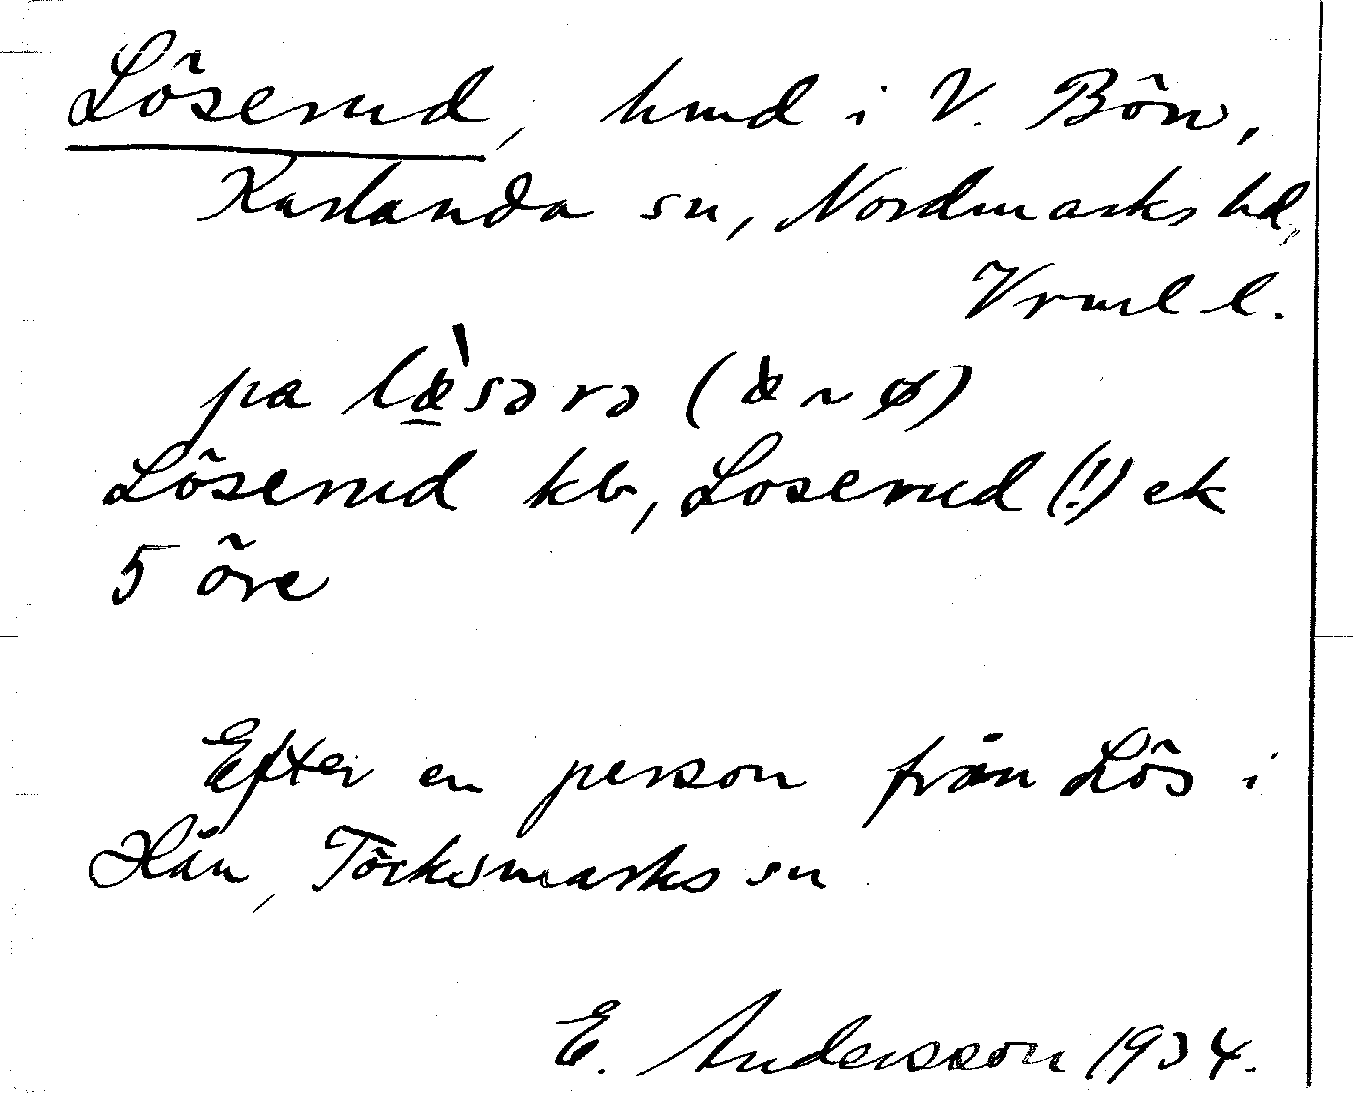 Löserud, hmd i V. Bön,
Karlanda sn, Nordmarks hd,
Vrml l.
pa læ̀sərə (æ ~ ø)
Löserud kb, Loserud (!) ek
5 öre
Efter en person från Lös i
Hån, Töcksmarks sn
E. Andersson 1934.